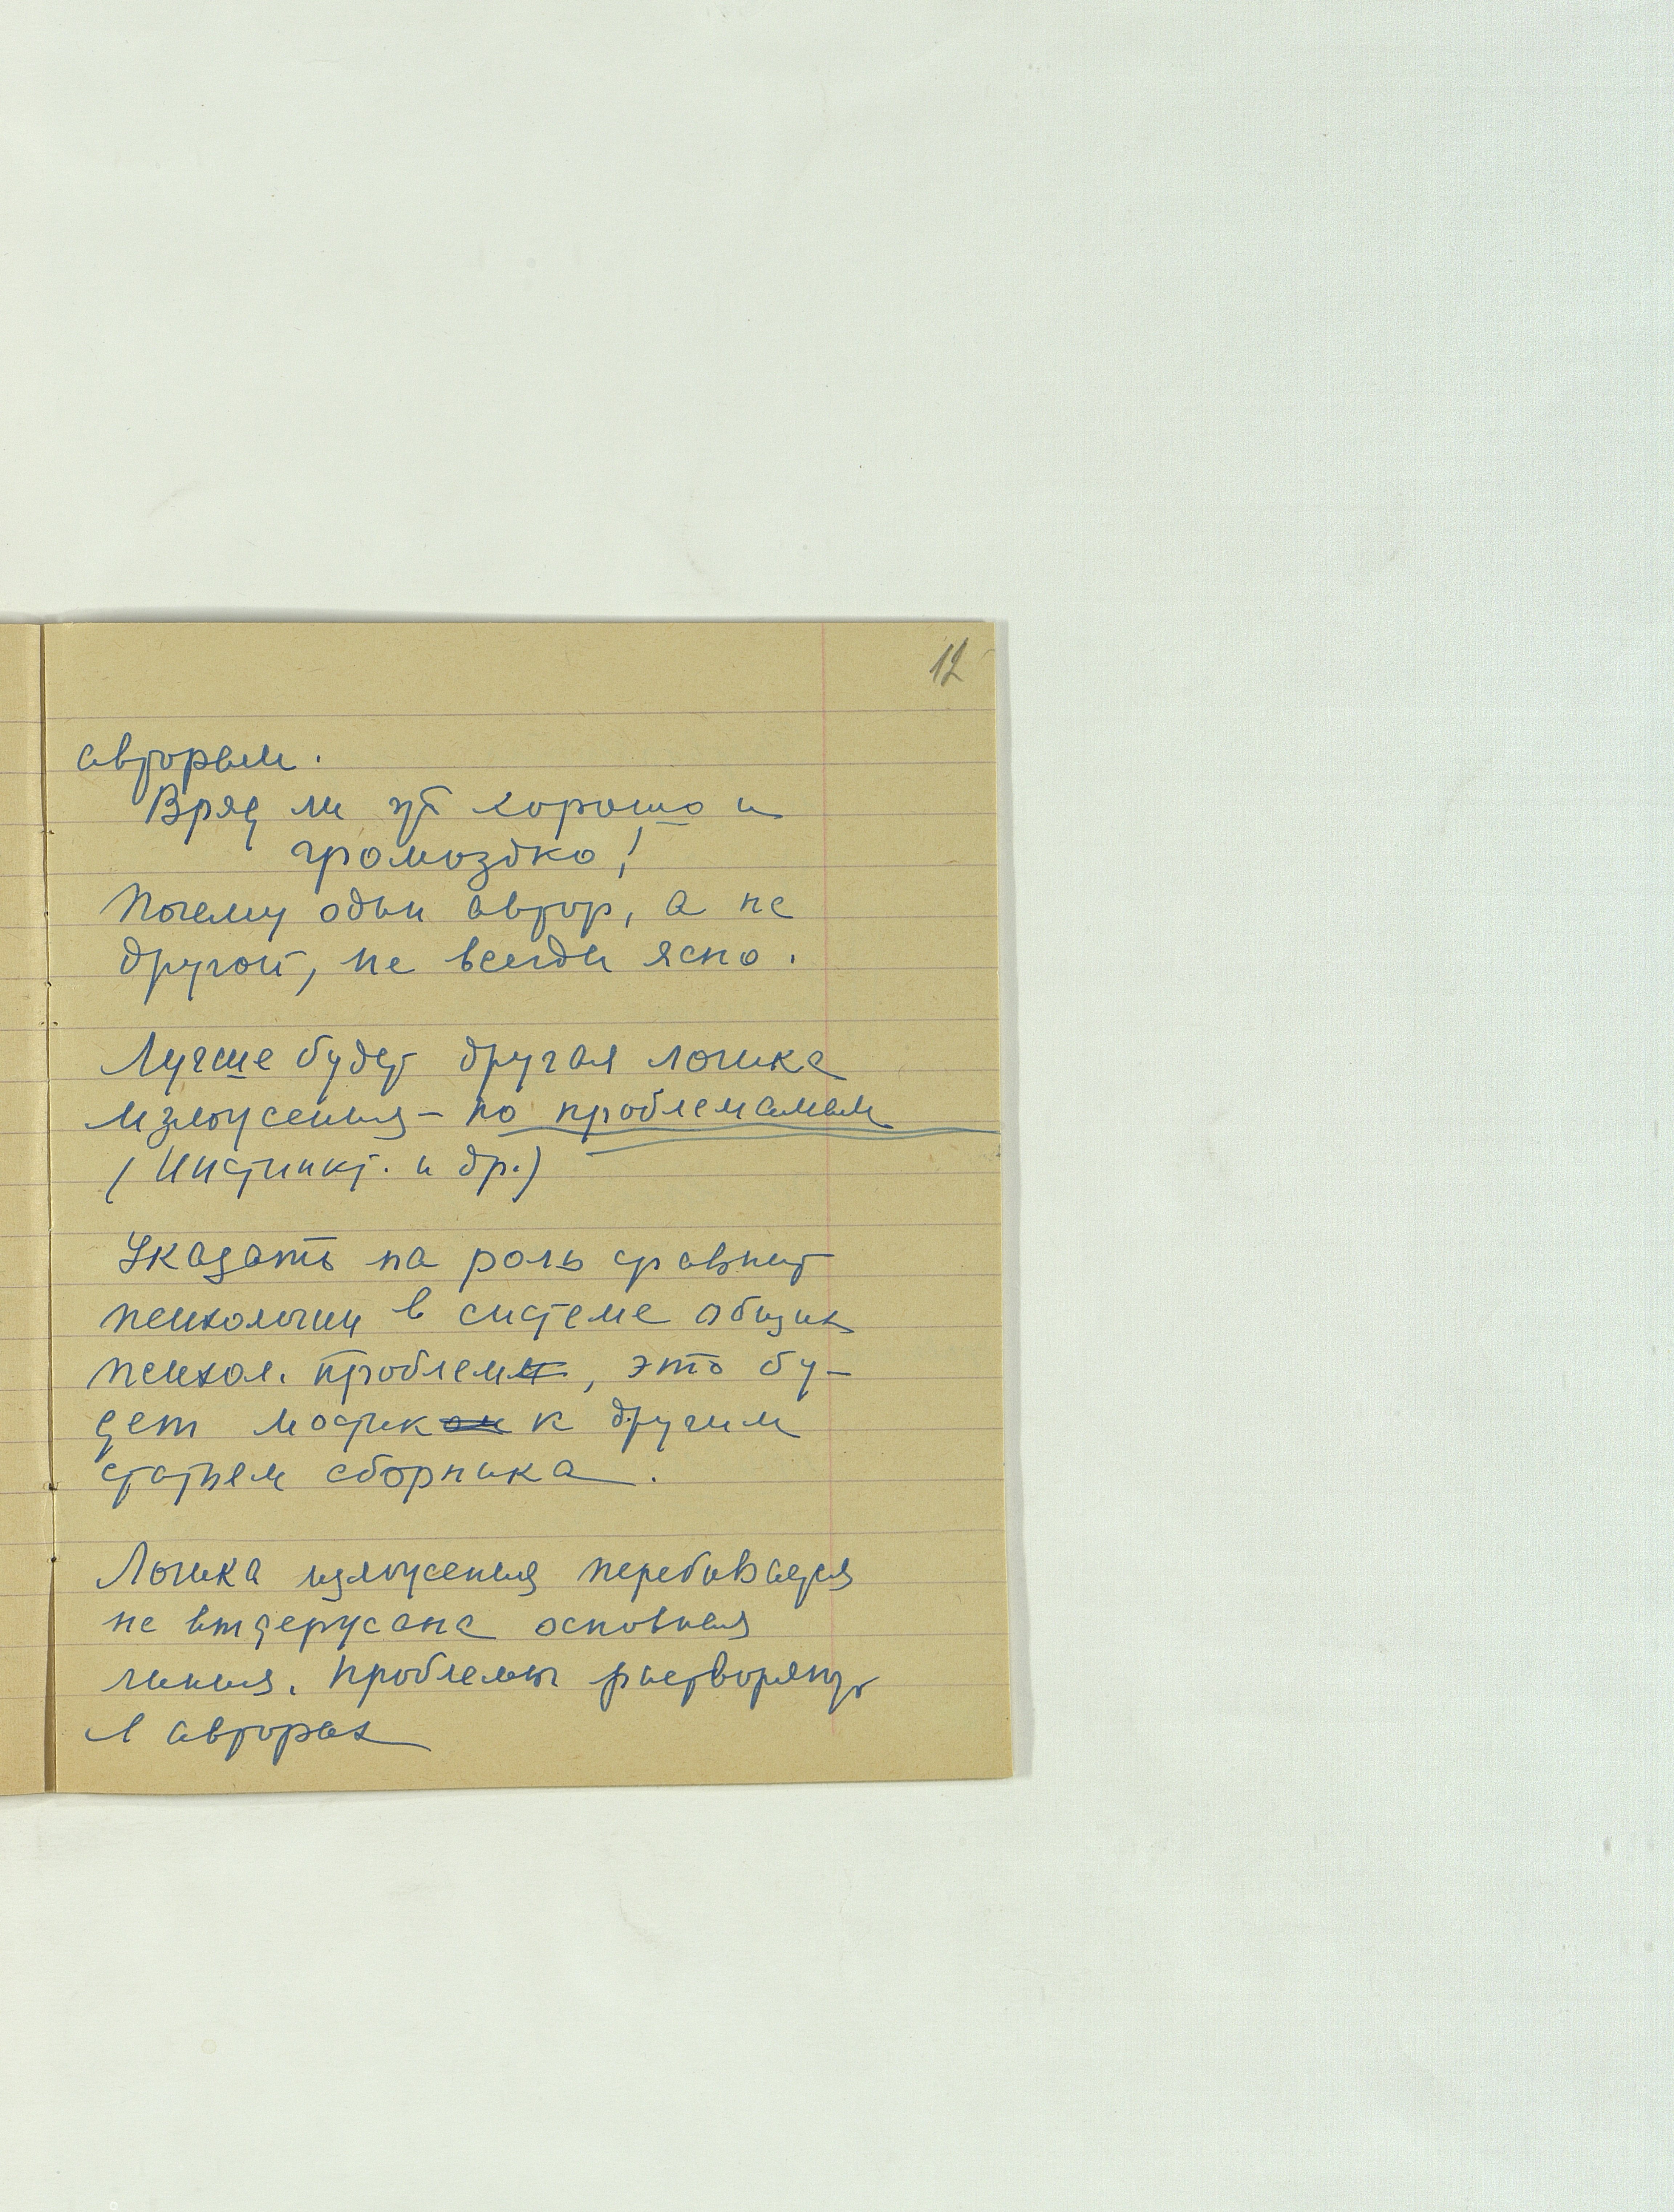 12
авторам.
Вряд ли это хорошо и
громоздко!
Почему один автор, а не
другой, не всегда ясно.
Лучше будет другая логика
изложения – по проблемамам
(Инстинкт. и др.)
Указать на роль сравнит
психологии в системе общих
психол. проблем, это бу-
дет мостик к другим
статьям сборника.
Логика изложения перебивается
не выдержана основная
линия. Проблемы растворяются
в авторах